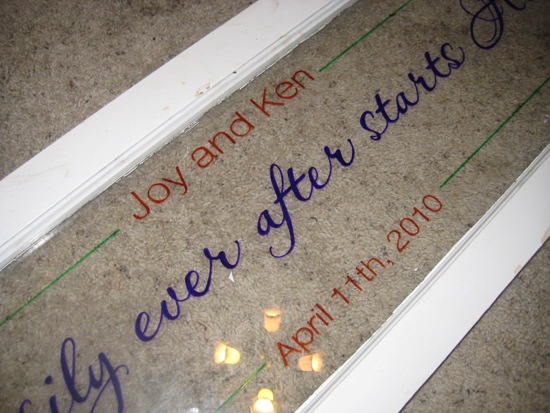 Joy and Ken
ever after starts
April 11th, 2010